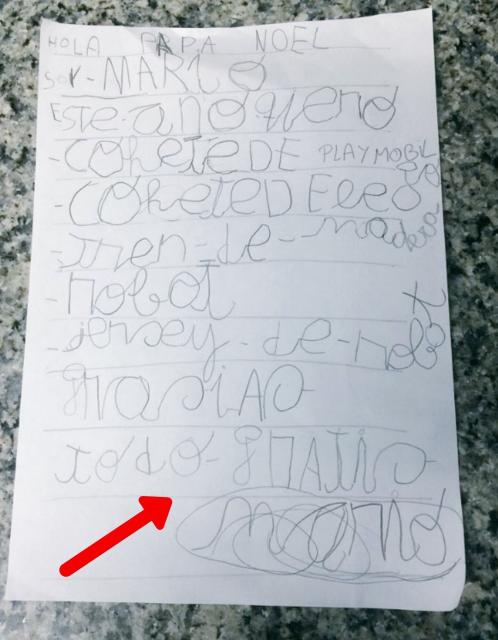 HOLA PAPA NOEL
SOY-MARIO
ESTE-año quero
-COHETE DE PLAYMOBIL
-COHETE DE lego
tren-de-madera
-robot
-jersey-de-robot
graciAs
todo-gRATIs
mario